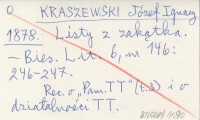 O KRASZEWSKI Józef Ignacy
1878. Listy z zakątka.
– Bies. Lit. 6, nr 146:
246-247.
Rec. „Pam. TT" (t. 3) i o
działalności TT.